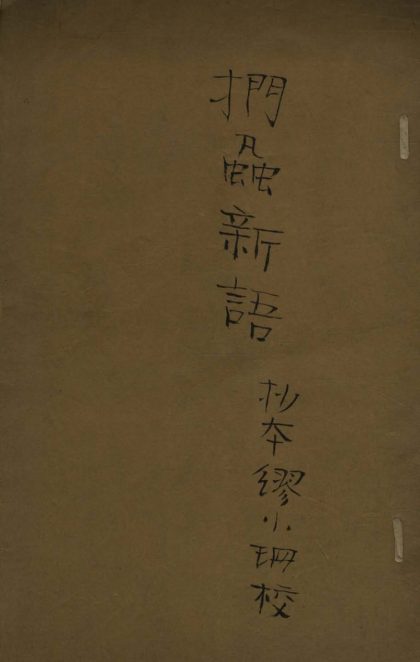 捫蝨新語
抄本繆小珊校